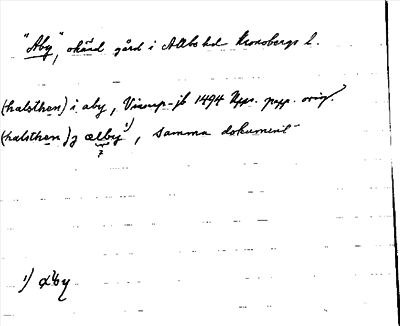 "Aby", okänd gård i Allbo hd Kronobergs l.
(halsthen) i aby, Vinarp-jb 1494 Upps. papp. orig.
(halsthen) j ælby¹⁾, samma dokument
?
1) æ̈lby